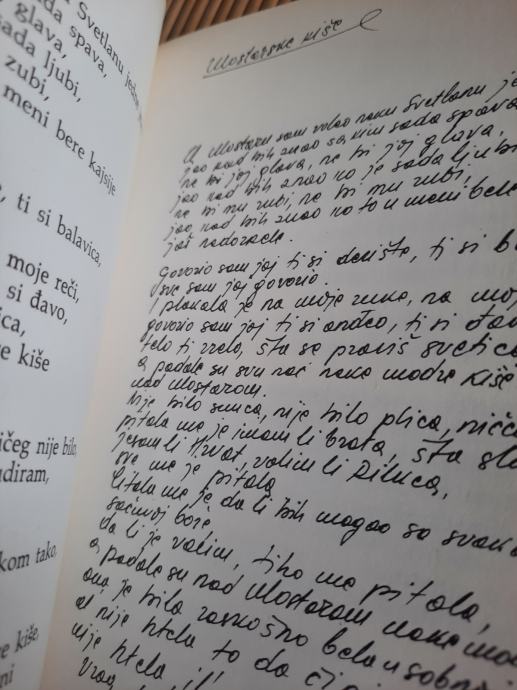 Svetlanu jedne
spava,
glava,
sada ljubi,
zubi,
meni bere kajsije
ti si balavica,
moje reči,
si đavo,
kiše
ičeg nije bilo
kom tako,
kiše.
Mostarske kiše
U Mostaru sam voleo neku Svetlanu
jao kad bih znao sa kim sada spava
ne bi joj glava, ne bi joj glava,
jao kad bih znao ko je sada ljubi
ne bi mu zubi, ne bi mu zubi,
jao kad bih znao ko to u meni bere
još nedozrele.
govorio sam joj ti si derište, ti si
sve sam joj govorio.
I plakala je na moje ruke, na
govorio sam joj ti si anđeo, ti si
telo ti zrelo, šta se praviš svetica
a padale su svu noć neke modre kiše
nad Mostarom.
Nije bilo sunca, nije bilo ptica,
pitala me je imam li brata, šta
jesam li Hrvat, volim li Rilkea,
sve me je pitala
Pitala me je da li bih mogao sa
sačuvaj bože
da li je volim, tiho me pitala,
a padale su nad Mostarom neke
ona je bila raskošno bela u sobi
al nije htela to da
nije htela